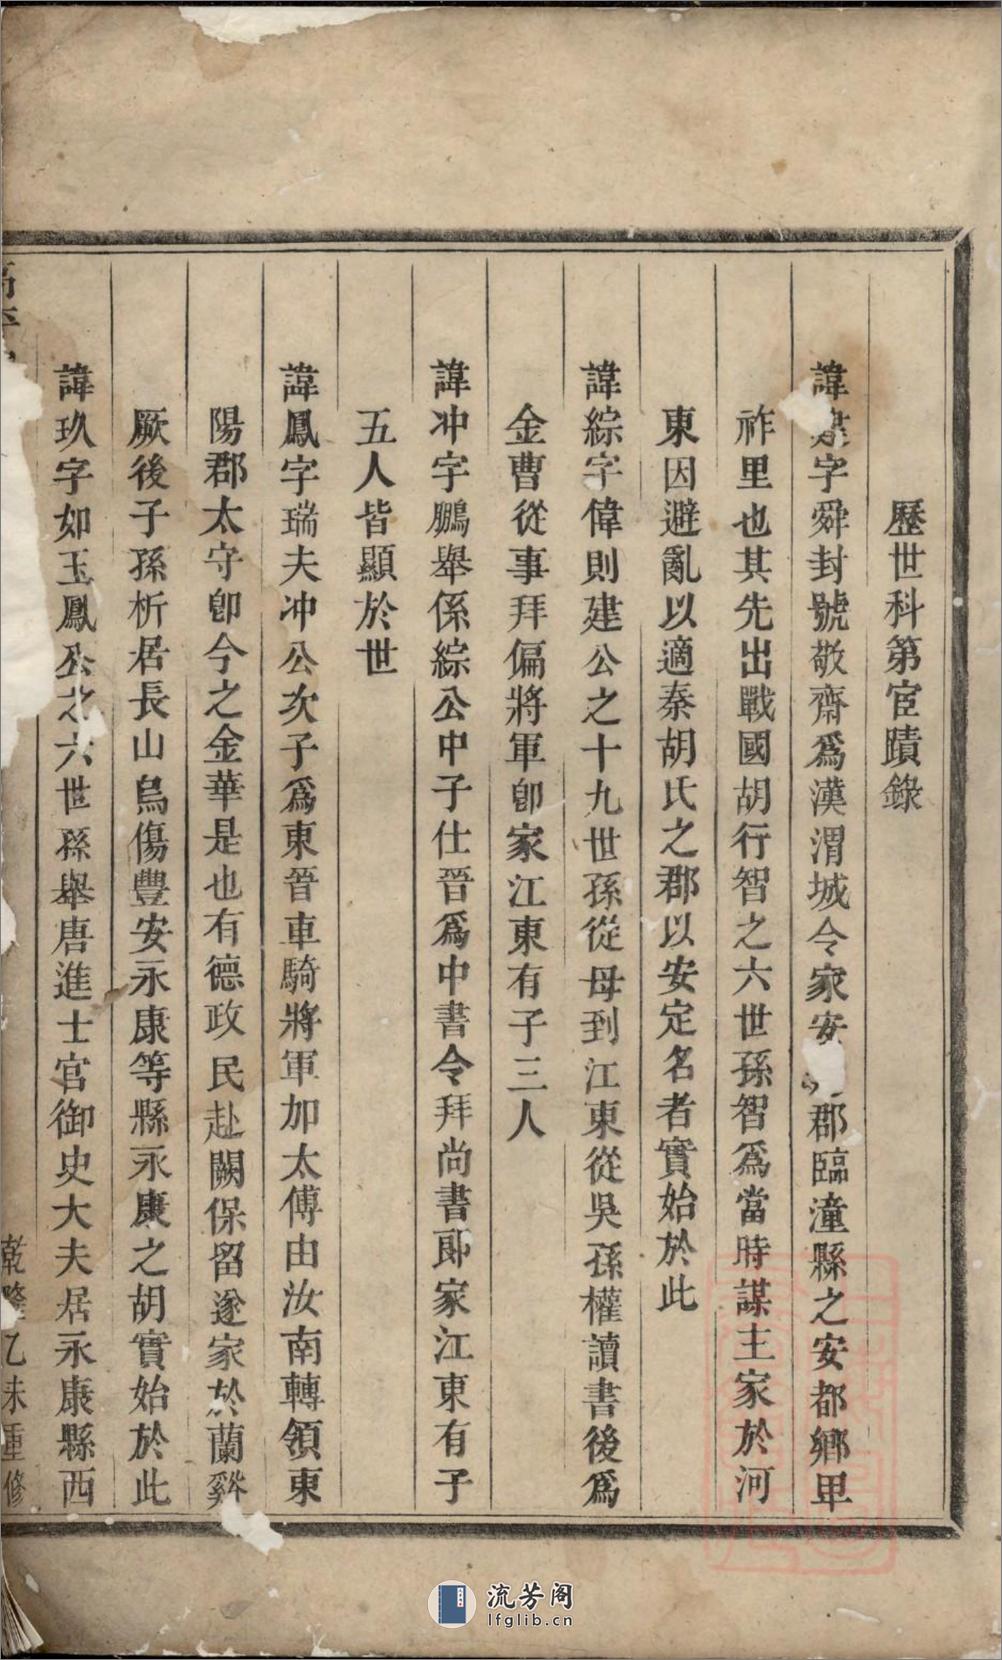 歷世科第宦蹟錄
諱建字舜封號敬齋爲漢渭城令家安郡臨潼縣之安都鄉甲
祚里也其先出戰國胡行智之六世孫智爲當時謀主家於河
東因避亂以適秦胡氏之郡以安定名者實始於此
諱綜字偉則建公之十九世孫從母到江東從吳孫權讀書後爲
金曹從事拜偏將軍卽家江東有子三人
諱冲字鵬舉係綜公中子仕晉爲中書令拜尚書郎家江東有子
五人皆顯於世
諱鳳字瑞夫冲公次子爲東晉車騎將軍加太傅由汝南轉領東
陽郡太守卽今之金華是也有德政民赴闕保留遂家於蘭谿
厥後子孫析居長山烏傷豐安永康等縣永康之胡實始於此
諱玖字如玉鳳公之六世孫舉唐進士官御史大夫居永康縣西
乾隆乙未重修
流芳阁
lfglib.cn